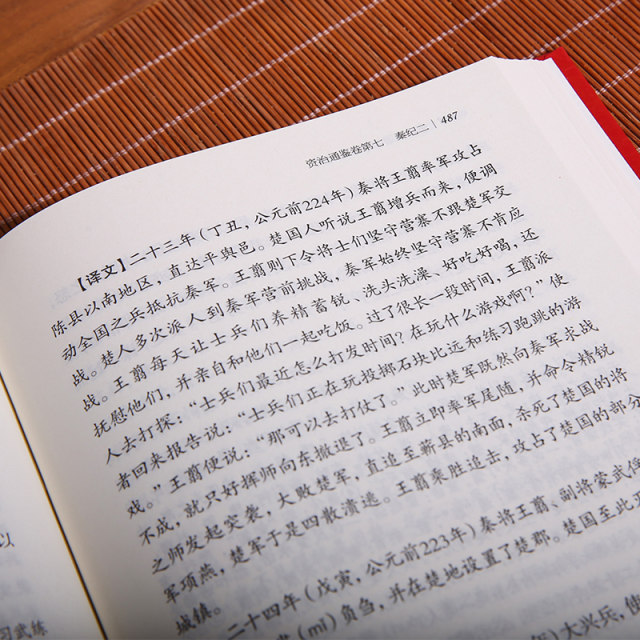 资治通鉴卷第七 秦纪二 | 487
【译文】二十三年(丁丑,公元前224年)秦将王翦率军攻占
陈县以南地区,直达平舆邑。楚国人听说王翦增兵而来,便调
动全国之兵抵抗秦军。王翦则下令将士们坚守营寨不跟楚军交
战。楚人多次派人到秦军营前挑战,秦军始终坚守营寨不肯应
战。王翦每天让士兵们养精蓄锐、洗头洗澡、好吃好喝,还
抚慰他们,并亲自和他们一起吃饭。过了很长一段时间,王翦派
人去打探:“士兵们最近怎么打发时间?在玩什么游戏啊?”使
者回来报告说:“士兵们正在玩投掷石块比远和练习跑跳的游
戏。”王翦便说:“那可以去打仗了。”此时楚军既然向秦军求战
不成,就只好挪师向东撤退了。王翦立即率军尾随,并命令精锐
之师发起突袭,大败楚军,直追至蕲县的南面,杀死了楚国的将
军项燕,楚军于是四散溃逃。王翦乘胜进击,攻占了楚国的部分
城镇。
二十四年(戊寅,公元前223年)秦将王翦、副将蒙武俘
(mǐ)负刍,并在楚地设置了楚郡。楚国至此
大兴兵,使
以
习武练